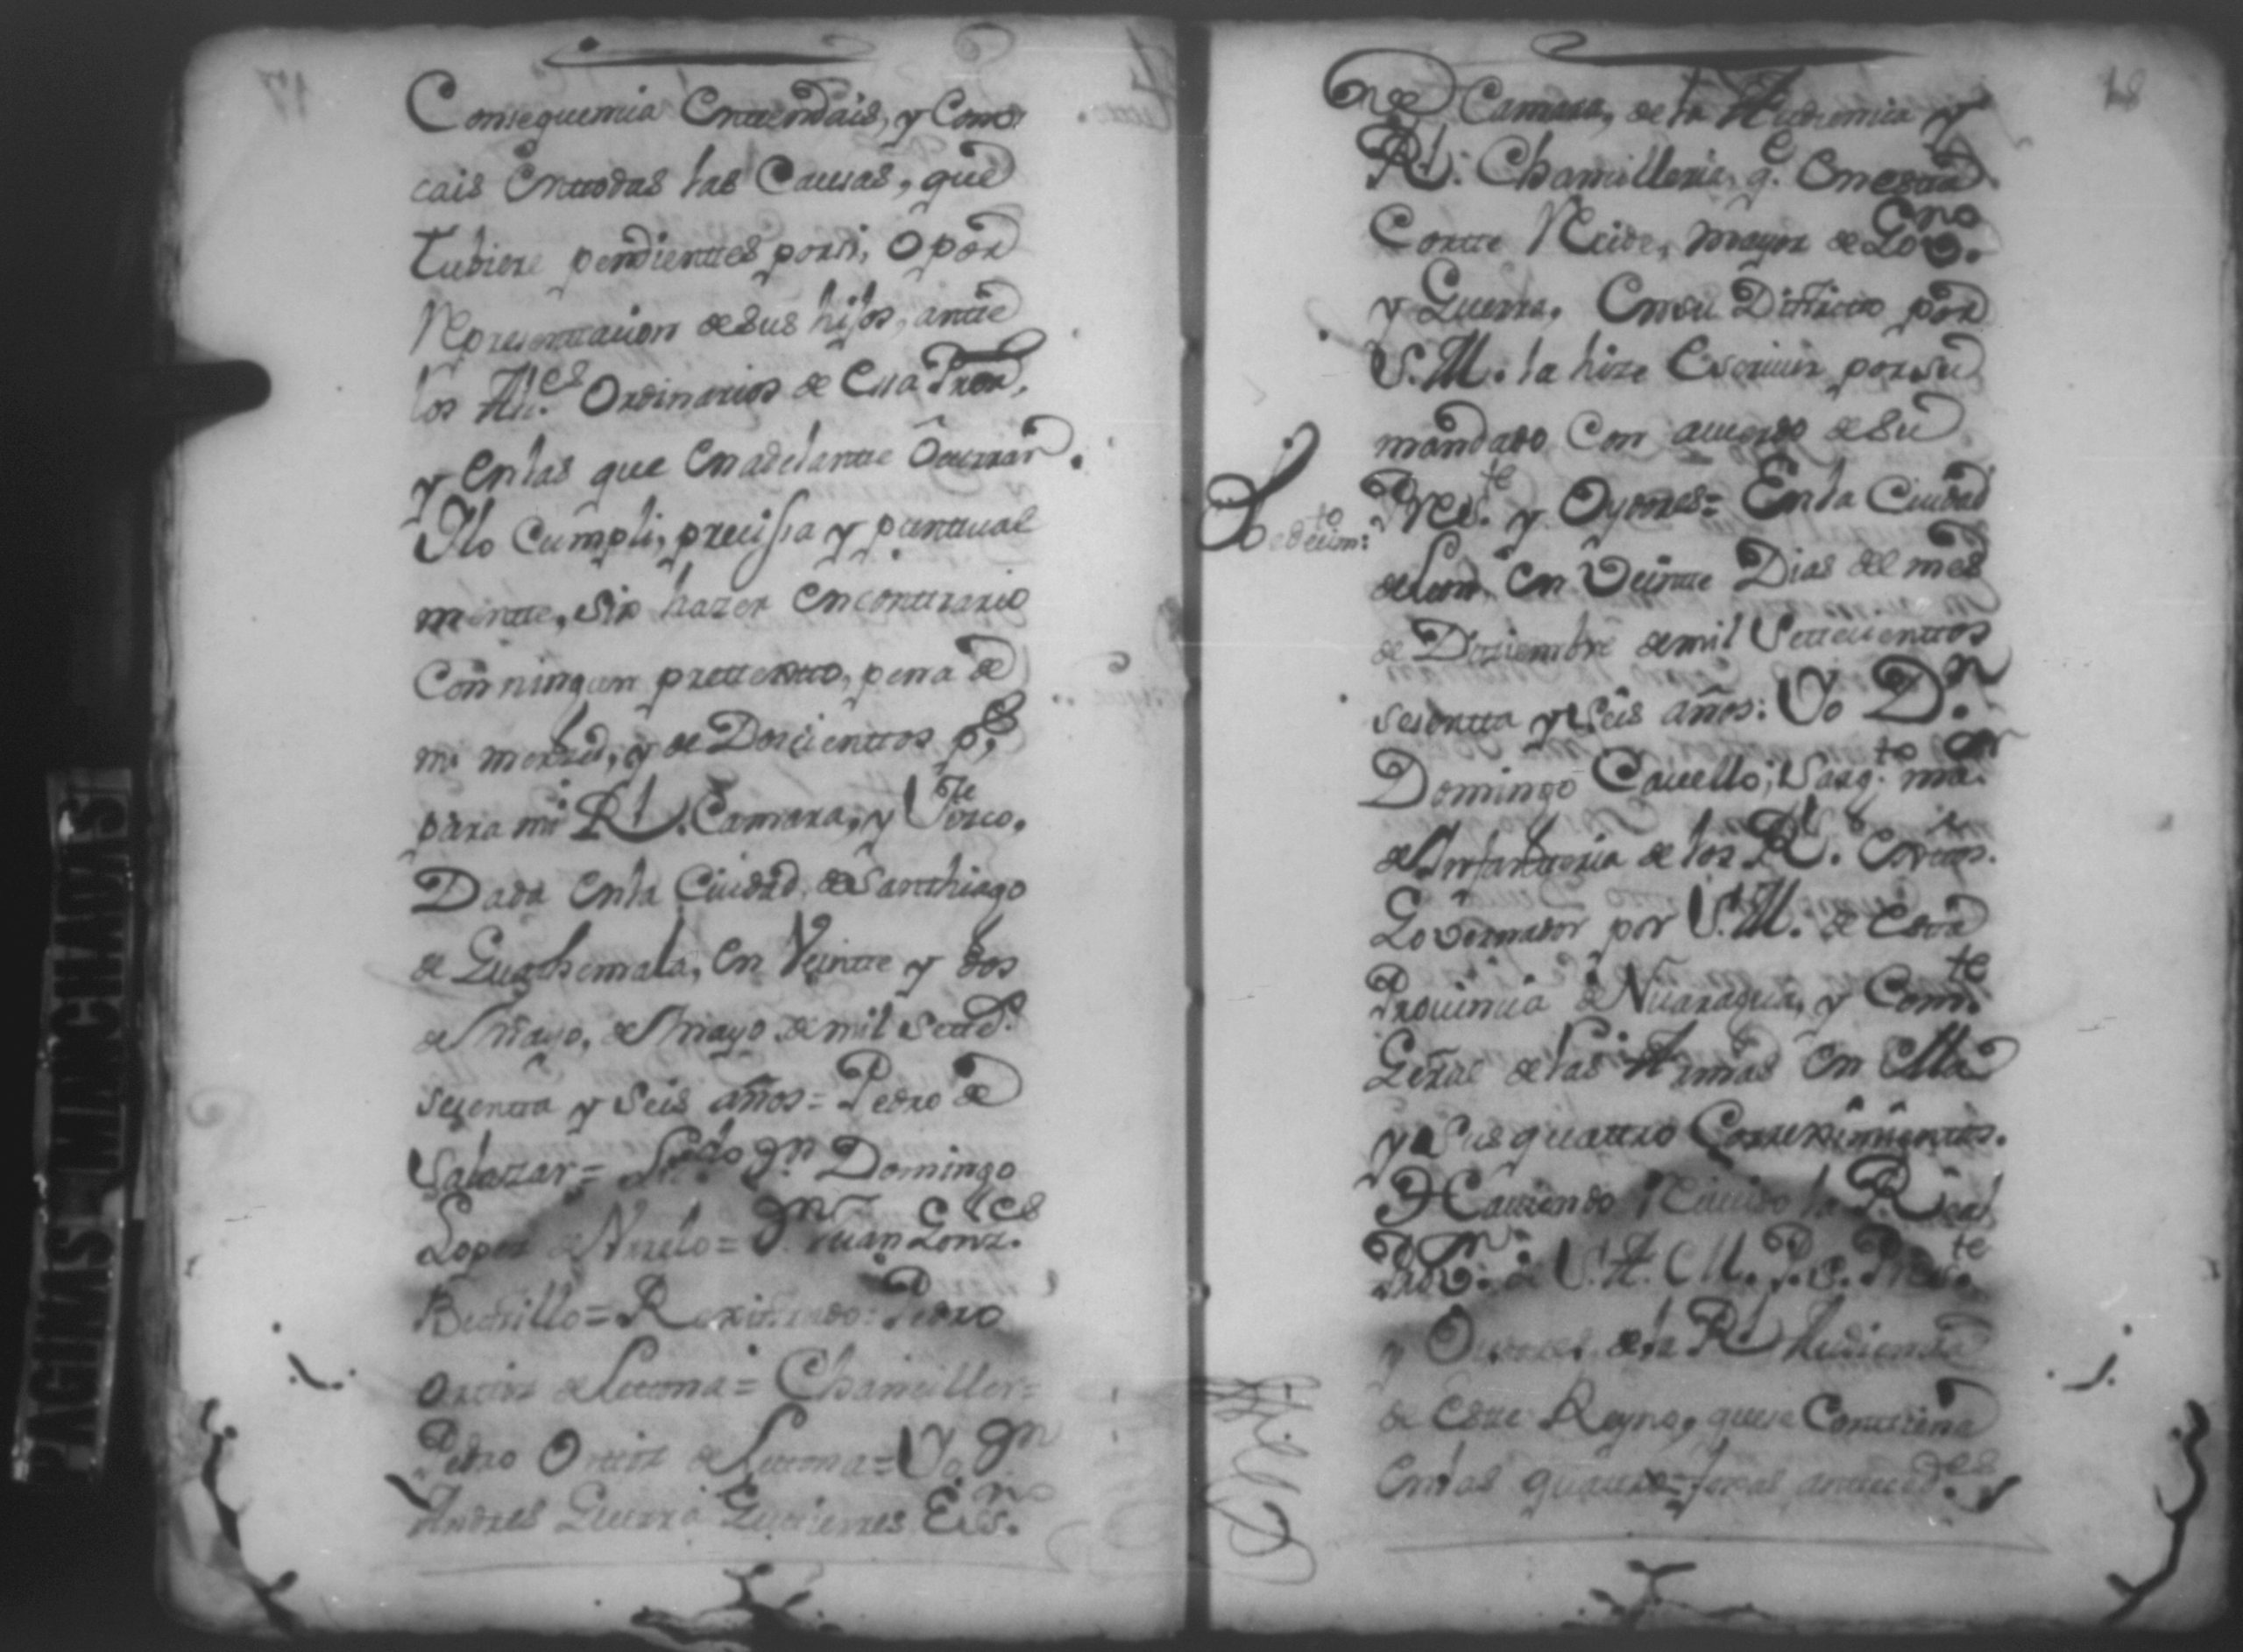 Consequencia Entendais, y Conos
cais Enttodas las Causas, que
Tubiere pendienttes porsi, O por
Representtacion de sus hijos, antte
los Alc.es Ordinarios de Essa
y Enlas que Enadelantte Ocurran.
Ylo Cumpli, precissa y punttual
mentte, sin hazer Encontrario
Conningun prettextto, pena de
mi merzed, y de Doscienttos p.s
para mi Rl. Camara, y
Dada Enla Ciudad de Santthiago
de Guathemala, En Veintte y dos
de Mayo, de Mayo de mil Sett.s
sesentta y Seis años = Pedro de
Salazar = Lic.do Dn. Domingo
Lopez de = Dn. Juan Gonz.les
Bustillo = Rexistrado: Pedro
Orttiz de Lettona = Chanciller =
Pedro Orttiz de Lettona = Yo Dn.
Andres Guerra Gutierres Es.no
17
18
de Camara, de la Audiencia y
Rl. Chancilleria, q.e Enestta
Cortte Recide, mayor de Gov.no
y Guerra, Ensu Disttricto por
S. M. la hize Escriuir por su
mandado Con acuerdo de Su
Pres.te y Oydores = Enla Ciudad
de Leon, En Veintte Dias del mes
de Diziembre de mil Settecienttos
sesentta y Seis años: Yo Dn.
Domingo Cauello, Sarg.to ma.or
de Infantteria de los Rl.s
Governador por S. M. de Estta
Prouincia de Nicaragua, y Com.te
Gen̄al de las Armas En Ella
y Sus quattro Correximientos.
Hauiendo Reciuido la Real
Prov.on de S. A. M. P. S. Pres.te
y Oydores de la Rl Audiencia
de Estte Reyno, quese Conttiene
Enlas quattro foxas anteced.es
Obedecim.to:
PAGINAS MANCHADAS